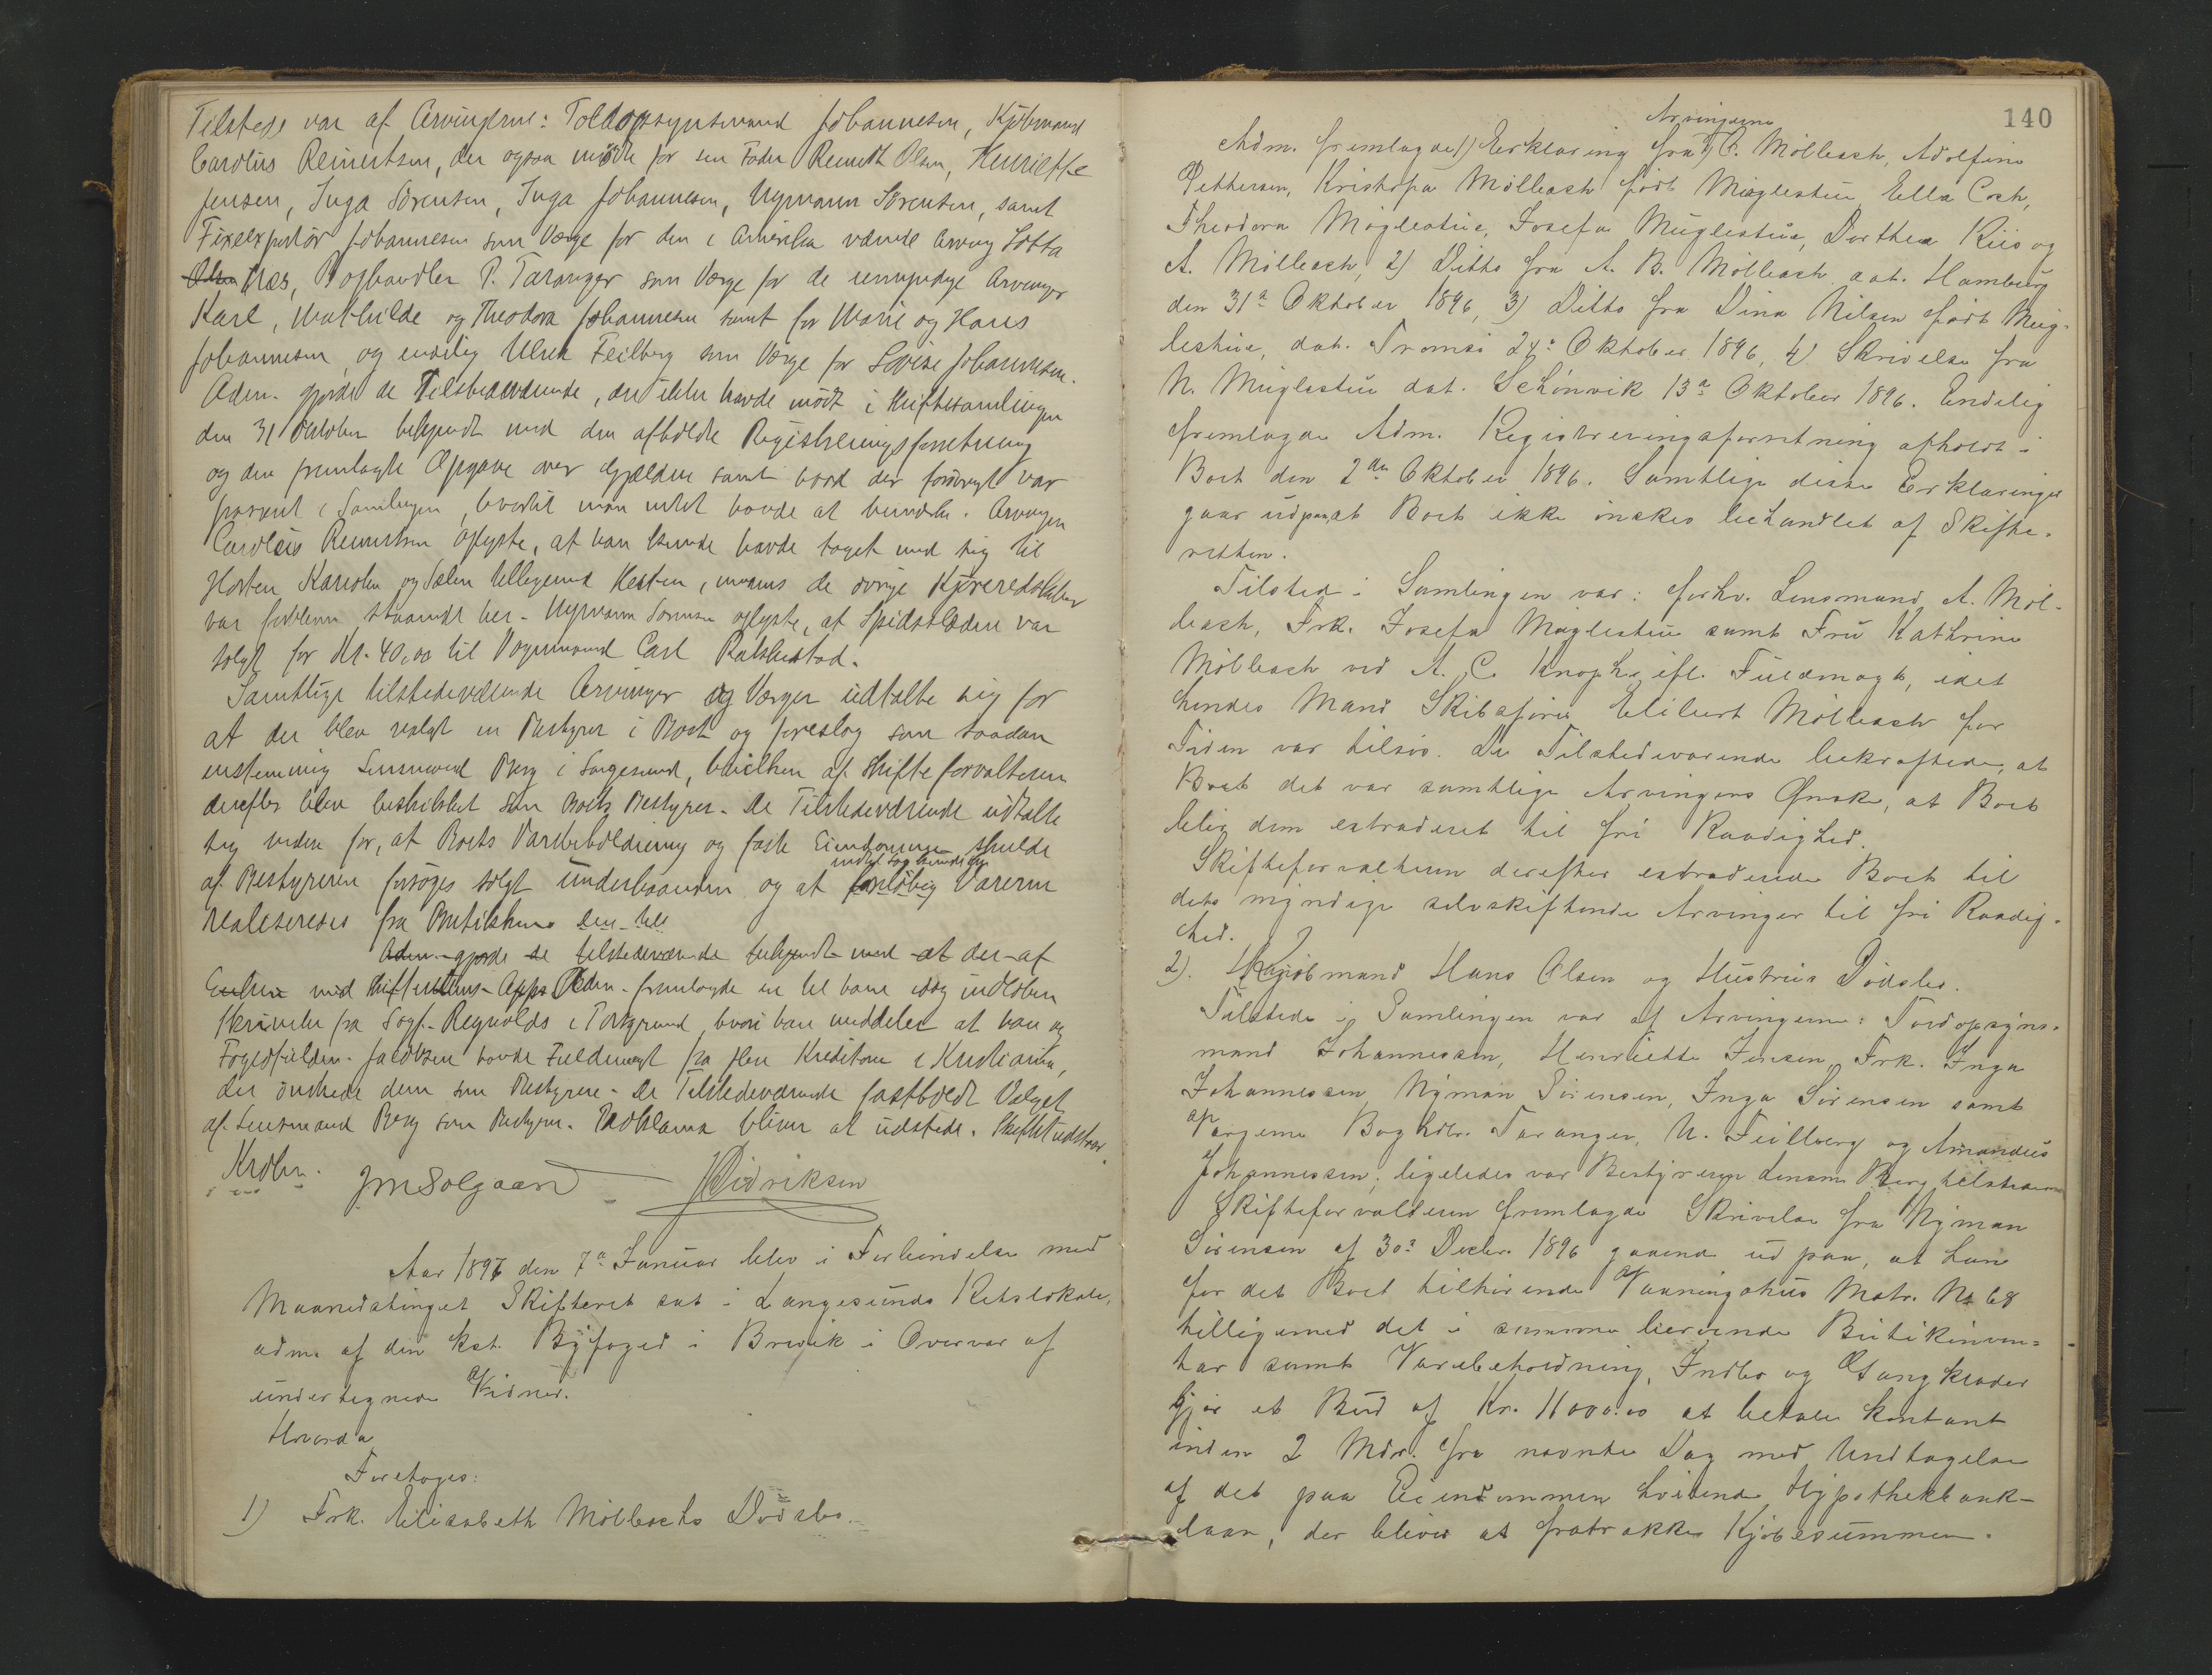 Tilstede var af Arvingerne: Toldopsynsmand Johannesen, Kjöbmand
Carolius Reinertsen, der ogsaa mödte for sin Fader Reinert Olsen, Henriette
Jensen, Inga Sörensen, Inga Johannesen, Nymann Sörensen, samt
Johannesen som Værge for den i Amerika værende Arving Lotta
Olsen Næs, Boghandler P. Taranger som Værge for de umyndige Arvinger
Karl, Mathilde og Theodora Johannesen samt for Marie og Hans
Johannesen, og endelig Ulrik Feilberg som Værge for Lovise Johannesen.
Adm. gjorde de Tilstedeværende, der ikke havde mödt i Skiftesamlingen
den 31 Oktober bekjendt med den afholdte Registreringsforretning
og den fremlagte Opgave over Gjælden samt hvad der forövrigt var
passeret i Samlingen, hvortil man intet havde at bemærke. Arvingen
Carolius Reinertsen oplyste, at han havde taget med sig til
Hesten Kariolen og Sælen tilligemed Hesten, medens de övrige Kjöreredskaber
var forbleven staaende her. Nymann Sörensen oplyste, at Spidsslæden var
solgt for Kr. 40,00 til Vognmand Carl
Samtlige tilstedeværende Arvinger og Værger udtalte sig for
at der blev valgt en Bestyrer i Boet og foreslog som saadan
enstemmig Lensmand Berg i Langesund, hvilken af Skifteforvalteren
derefter blev beskikket som Boets Bestyrer. De Tilstedeværende udtalte
sig videre for, at Boets Varebeholdning og faste Eiendomme skulde
af Bestyreren forsöges solgt underhaanden og at foreløbig Varerne
realiseredes fra Butikken
Adm. gjorde de tilstedeværende bekjendt med at der af
med Adm. fremlagde en til ham idag indløben
Skrivelse fra Sagf. Reynolds i Porsgrund, hvori han meddeler at han og
Fogedfuldm. Jacobsen havde Fuldmagt fra flere Kreditorer i Kristiania,
der önskede dem som Bestyrere. De Tilstedeværende fastholdt Valget
af Lensmand Berg som Bestyrer. Proklama bliver at udstede. Skiftet udstaar.
JMSolgaard HDidriksen
Aar 1897 den 7de Januar blev i Forbindelse med
Maanedstinget Skifteret sat i Langesunds Retslokale,
adm. af den kst. Byfoged i Brevik i Overvær af
undertegnede Vidner.
Hvorda
Foretoges:
1) Frk. Elisabeth Möllbachs Dödsbo.
140
Arvingerne
Adm. fremlagde 1) Erklæring fra C. Möllbach, Adolfine
Pettersen, Kristofa Möllbach född Müglestue, Ella Coch,
Theodora Müglestue, Josefa Müglestue, Dorthea Riis og
A. Möllbach, 2) Ditto fra A. B. Möllbach dat. Hamburg
den 31te Oktober 1896, 3) Ditto fra Dina Nilsen född Müg-
lestue, dat. Tromsö 24de Oktober 1896, 4) Skrivelse fra
N. Müglestue dat. Schönvik 13de Oktober 1896. Endelig
fremlagde Adm. Registreringsforretning afholdt i
Boet den 2den Oktober 1896. Samtlige disse Erklæringer
gaar ud paa, at Boet ikke önskes behandlet af Skifte-
retten.
Tilstede i Samlingen var: forhv. Lensmand A. Möl-
bach, Frk. Josefa Müglestue samt Fru Kathrine
Möllbach ved A. C. Knoph ifl. Fuldmagt, idet
hendes Mand Skibsförer Eilert Möllbach for
Tiden var tilsös. De Tilstedeværende bekræftede, at
Boet det var samtlige Arvingers Önske, at Boet
blev dem extraderet til fri Raadighed.
Skifteforvalteren derefter extraderede Boet til
dets myndige selvskiftende Arvinger til fri Raadig-
hed.
2). Kjöbmand Hans Olsen og Hustrus Dödsbo.
Tilstede i Samlingen var af Arvingerne: Toldopsyns-
mand Johannessen, Henriette Jensen, Frk. Inga
Johannessen, Nyman Sörensen, Inga Sörensen samt
Værgerne Boghdlr. Taranger, U. Feilberg og Amandus
Johannessen; ligeledes var Bestyreren Lensm Berg tilstede
Skifteforvalteren fremlagde Skrivelse fra Nyman
Sörensen af 30te Decbr. 1896 gaaende ud paa, at han
for det Boet tilhörende Vaaningshus Matr. No 68
tilligemed det i samme beroende Butikinven-
tar samt Varebeholdning, Indbo og Gangklæder
gjör et Bud af Kr. 11000.00 at betale kontant
inden 2 Mdr. fra nævnte Dag med Undtagelse
af det paa Eiendommen hvilende Hypothekbank-
laan, der bliver at fratrække Kjöbesummen.